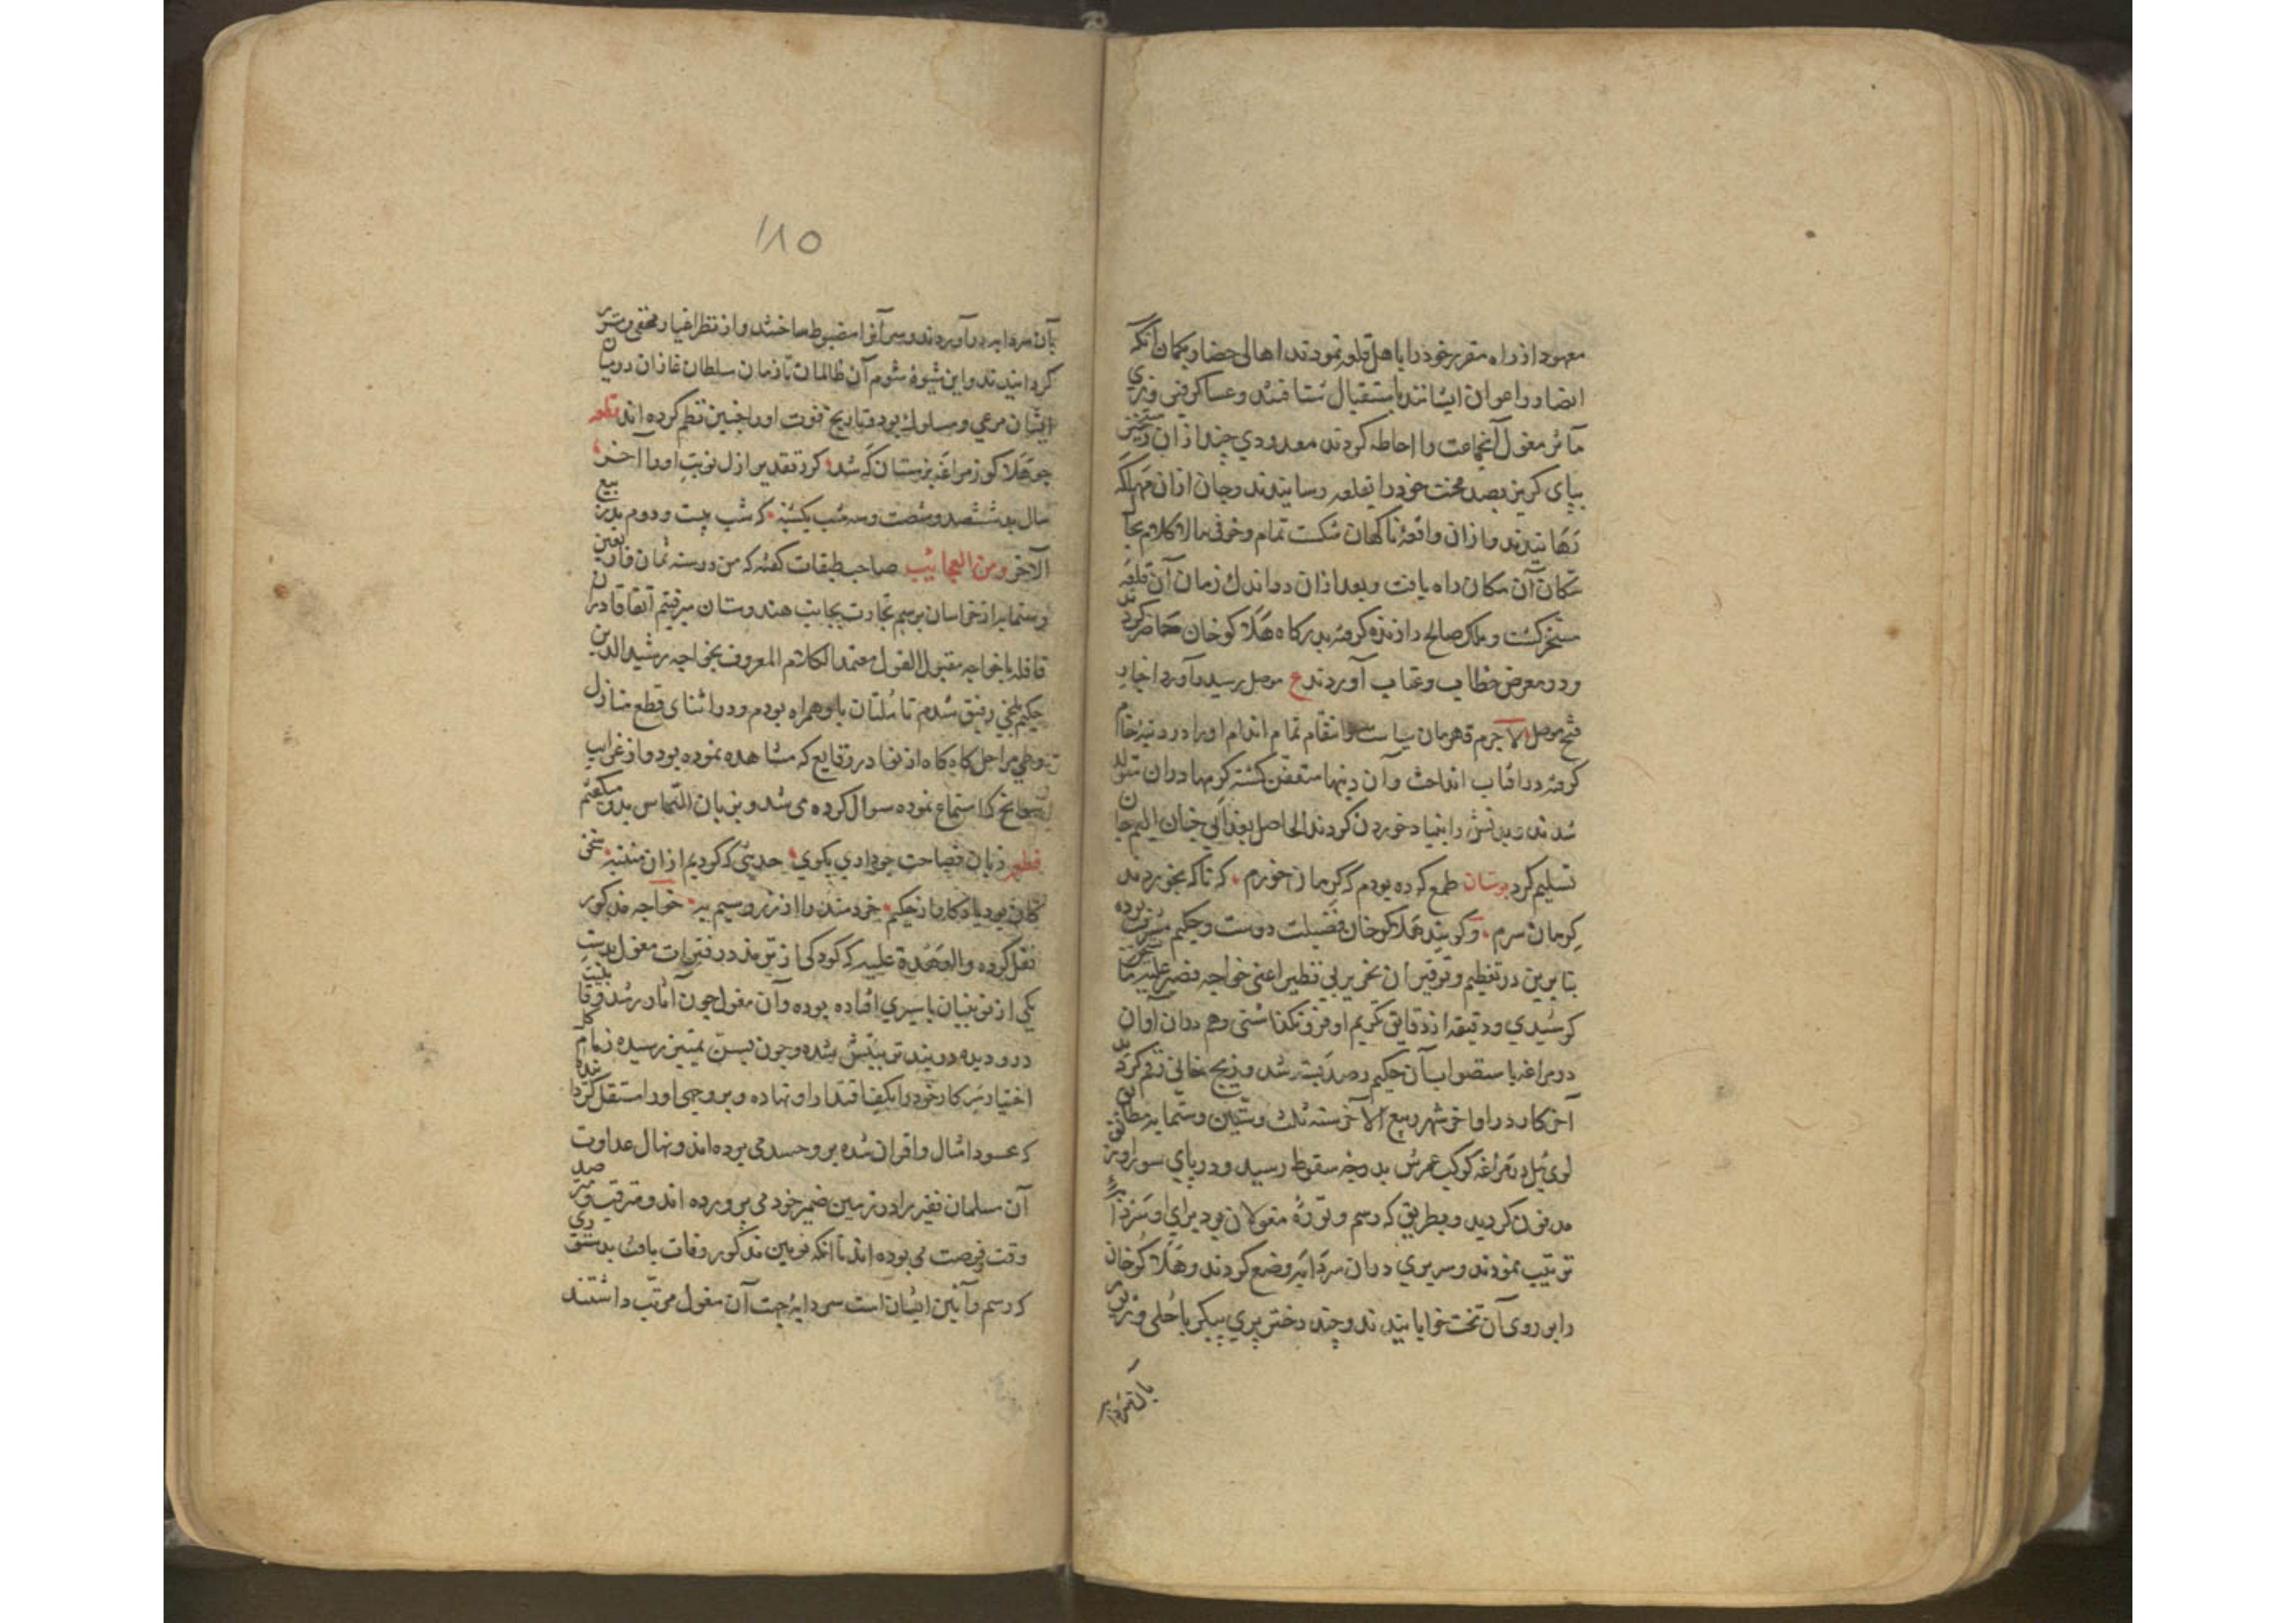 معهود از راه مقرر خود را باهل قلعه نمودند اهالی حصار بکمان آنکه
انصار و اعوان ایشانند باستقبال شتافتند و عساکر فیروزی
مآثر مغول آنجماعت را احاطه کردند معدودی چند از ان رستخیز
بپای کریز بصد محنت خود را بقلعه رسانیدند و جان از ان مهلکه
رهانیدند و از ان واقعهٔ ناکهان شکست تمام و خوفی مالاکلام بحال
سکان آن مکان راه یافت و بعد از ان در اندک زمان آن قلعه
مسخر کشت و ملک صالح را زنده کرفته بدرکاه هلاکو خان حاضر کردند
و در معرض خطاب و عتاب آوردند ع موصل رسید و آورد اخبار
فتح موصل لاجرم قهرمان سیاست و انتقام تمام اندام او را در دنبه خام
کرفته در افتاب انداخت و آن دنبها متعفن کشته کرمها در ان متولد
شدند و بدنش را بنیاد خوردن کردند الحاصل بعذابی چنان الیم جان
تسلیم کرد بوستان طمع کرده بودم که کرمان خورم که ناکه بخوردند
کرمان سرم و کویند هلاکو خان فضیلت دوست و حکیم پرور بوده
بنابرین در تعظیم و توقیر ان نحریر بی نظیر اعنی خواجه نصیر علیه ما یستحق
کوشیدی و دقیقه از دقایق تکریم او فرو نکذاشتی و هم در ان آوان
در مراغه باستصواب آن حکیم رصد بسته شد و زیج خانی رقم کردند
آخر کار در اواخر شهر ربیع الآخر سنه ثلث و ستین و ستمایه مطابق
لوی ئیل در مراغه کوکب عمرش بدرجه سقوط رسید و در پای سور او نیز
مدفون کردید و بطریقی که رسم و توره مغولان بود برای او سردابه
ترتیب نمودند و سریری در ان سردابه وضع کردند و هلاکو خان
را بر روی آن تخت خوابانیدند و چند دختر پری پیکر با حلی و زیور
بآن سردابه
۱۸۵
بآن سردابه در آوردند و سر آنرا مضبوط ساختند و از نظر اغیار مخفی و مستتر
کردانیدند و این شیوهٔ شوم آن ظالمان تا زمان سلطان غازان در میان
ایشان مرعی و مسلوک بود و تاریخ فوت او را چنین نظم کرده اند قطعه
چو هلاکو ز مراغه بزمستان که شد کرد تقدیر ازل نوبت او را آخر
سال بد ششصد و شصت و سه شب یکشنبه که شب بیست و دوم بد ز ربیع
الآخر ومن العجایب صاحب طبقات کفته که من در سنه ثمان و اربعین
و ستمایه از خراسان برسم تجارت بجانب هندوستان میرفتم اتفاقا در ان
قافله با خواجه مقبول القول معتمد الکلام المعروف بخواجه رشید الدین
حکیم بلخی رفیق شدم تا ملتان با او همراه بودم و در اثنای قطع منازل
و طی مراحل کاه کاه از نوادر وقایع که مشاهده نموده بود و از غرایب
سوانح که استماع نموده سوال کرده می شد و بزبان التماس بدو میکفتم
قطعه زبان فصاحت چو دادی بکوی حدیثی که کردیم از ان منتبه سخن
کان بود یادکار از حکیم خردمند را از زر و سیم به خواجه مذکور
نقل کرده والعهدة علیه که کودکی از ترمذ در فترات مغول بدست
یکی از نوینیان باسیری افتاده بوده و آن مغول چون آثار رشد و قابلیت
درو دیده در بند تربیتش شده و چون بسن تمییز رسیده زمام
اختیار سرکار خود را بکف اقتدار او نهاده و بر وجهی او را مستقل کردانیده
که محسود امثال و اقران شده برو حسد می برده اند و نهال عداوت
آن مسلمان فقیر را در زمین ضمیر خود می پرورده اند و مترقب و مترصد
وقت فرصت می بوده اند تا انکه نویین مذکور وفات یافت بدستوری
که رسم و آیین ایشان است سردابهٔ جهت آن مغول مرتب داشتند